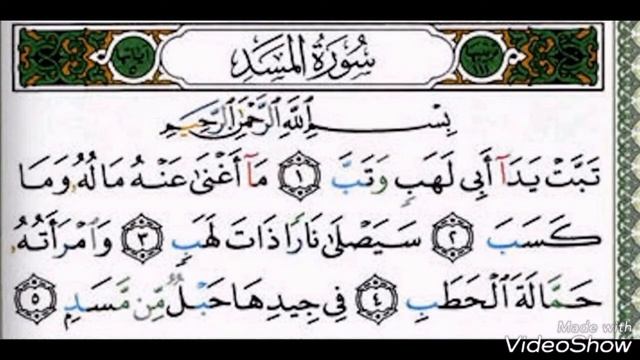 سُورَةُ المَسَدِ
بِسْمِ ٱللَّهِ ٱلرَّحْمَٰنِ ٱلرَّحِيمِ
تَبَّتْ يَدَآ أَبِى لَهَبٍ وَتَبَّ ١ مَآ أَغْنَىٰ عَنْهُ مَالُهُۥ وَمَا
كَسَبَ ٢ سَيَصْلَىٰ نَارًا ذَاتَ لَهَبٍ ٣ وَٱمْرَأَتُهُۥ
حَمَّالَةَ ٱلْحَطَبِ ٤ فِى جِيدِهَا حَبْلٌ مِّن مَّسَدٍۭ ٥
Made with
VideoShow